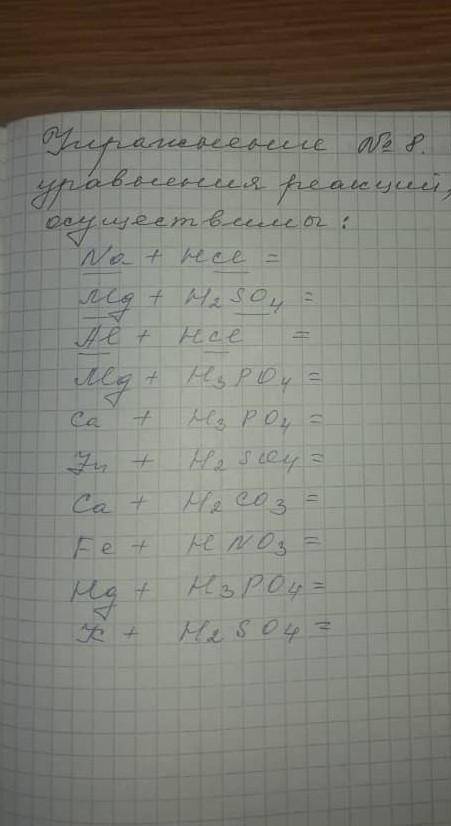 Упражнение № 8.
уравнения реакций,
осуществимы:
Na + HCl =
Mg + H2SO4 =
Al + HCl =
Mg + H3PO4 =
Ca + H3PO4 =
Zn + H2SO4 =
Ca + H2CO3 =
Fe + HNO3 =
Hg + H3PO4 =
K + H2SO4 =